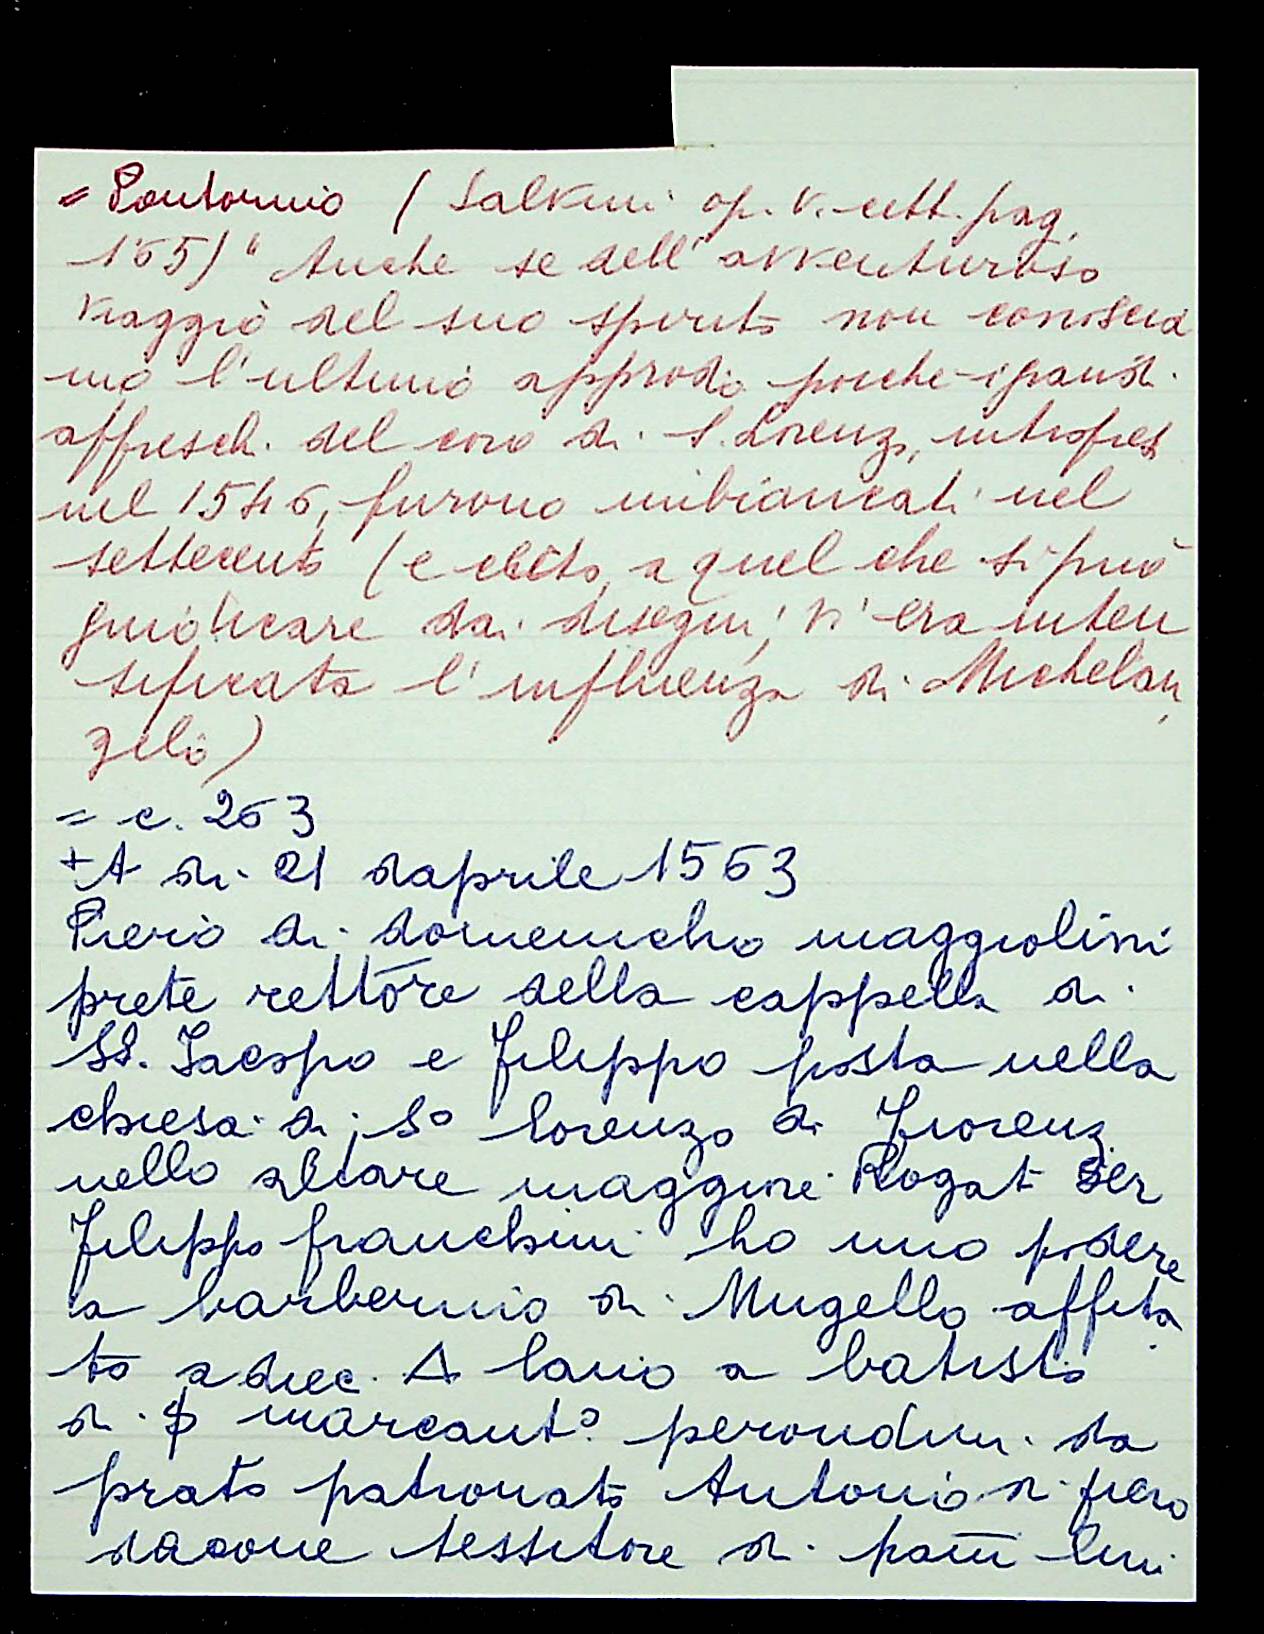 = Pontormo ( Salvini op. v. citt. pag.
165) " Anche se dell' avventuroso
viaggio del suo spirito non conoscia
mo l'ultimo approdo poiche i grandi
affreschi del coro di S. Lorenzo, intrapresi
nel 1546, furono imbiancati nel
settecento (e certo, a quel che si può
giudicare dai disegni, v'era inten
sificata l'influenza di Michelan
gelo)
= c. 263
+ A di 21 daprile 1563
Piero di domenicho maggiolini
prete rettore della cappella di
SS. Jacopo e Filippo posta nella
chiesa di So Lorenzo di Fiorenz
nello altare maggiore Rogat Ser
Filippo franchini ho uno podere
a barberino di Mugello affita
to a diec. Δ lano a batista
di marcanto perondini da
prato patronato Antonio di piero
dacone tessitore di pani lini